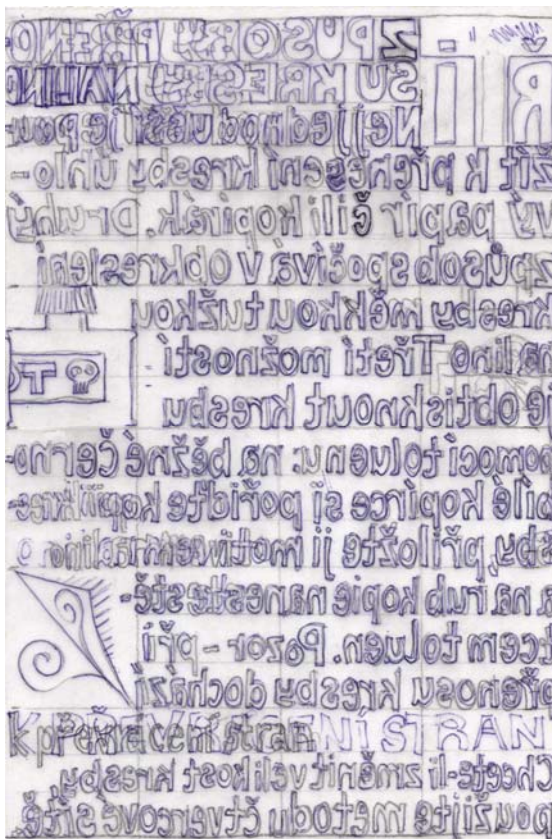 ŘI
ZPUSOBY PŘENO-
SU KRESBY NA LINO
Nejjednodušší je pou-
žít k přenesení kresby uhlo-
vý papír čili kopírák. Druhý
způsob spočívá v obkreslení
kresby měkkou tužkou
na lino Třetí možností
je obtisknout kresbu
TO
pomocí toluenu: na běžné černo-
bílé kopírce si pořiďte kopii kre-
sby, přiložte ji motivem na lino
a na rub kopie naneste ště-
tcem toluen. Pozor - při
přenosu kresby dochází
k převrácení stran
Chcete-li změnit velikost kresby,
použijte metodu čtvercové sítě,